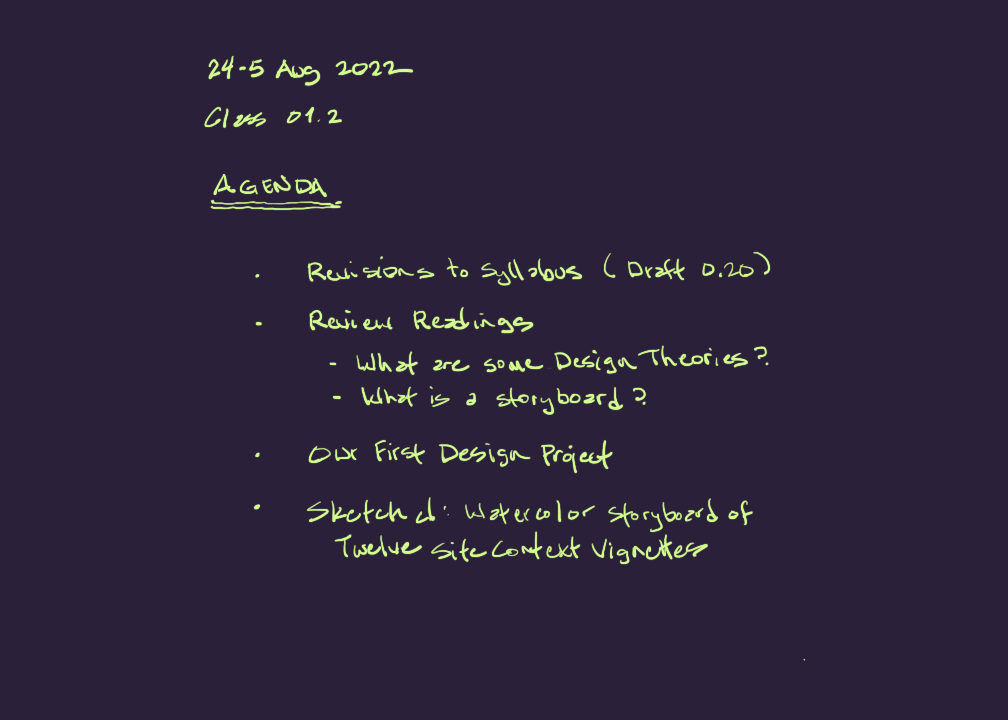 24-5 Aug 2022
Class 01.2
AGENDA
· Revisions to Syllabus (Draft 0.20)
· Review Readings
- What are some Design Theories?
- What is a storyboard?
· Our First Design Project
· Sketch d: Watercolor Storyboard of
Twelve Site Context Vignettes